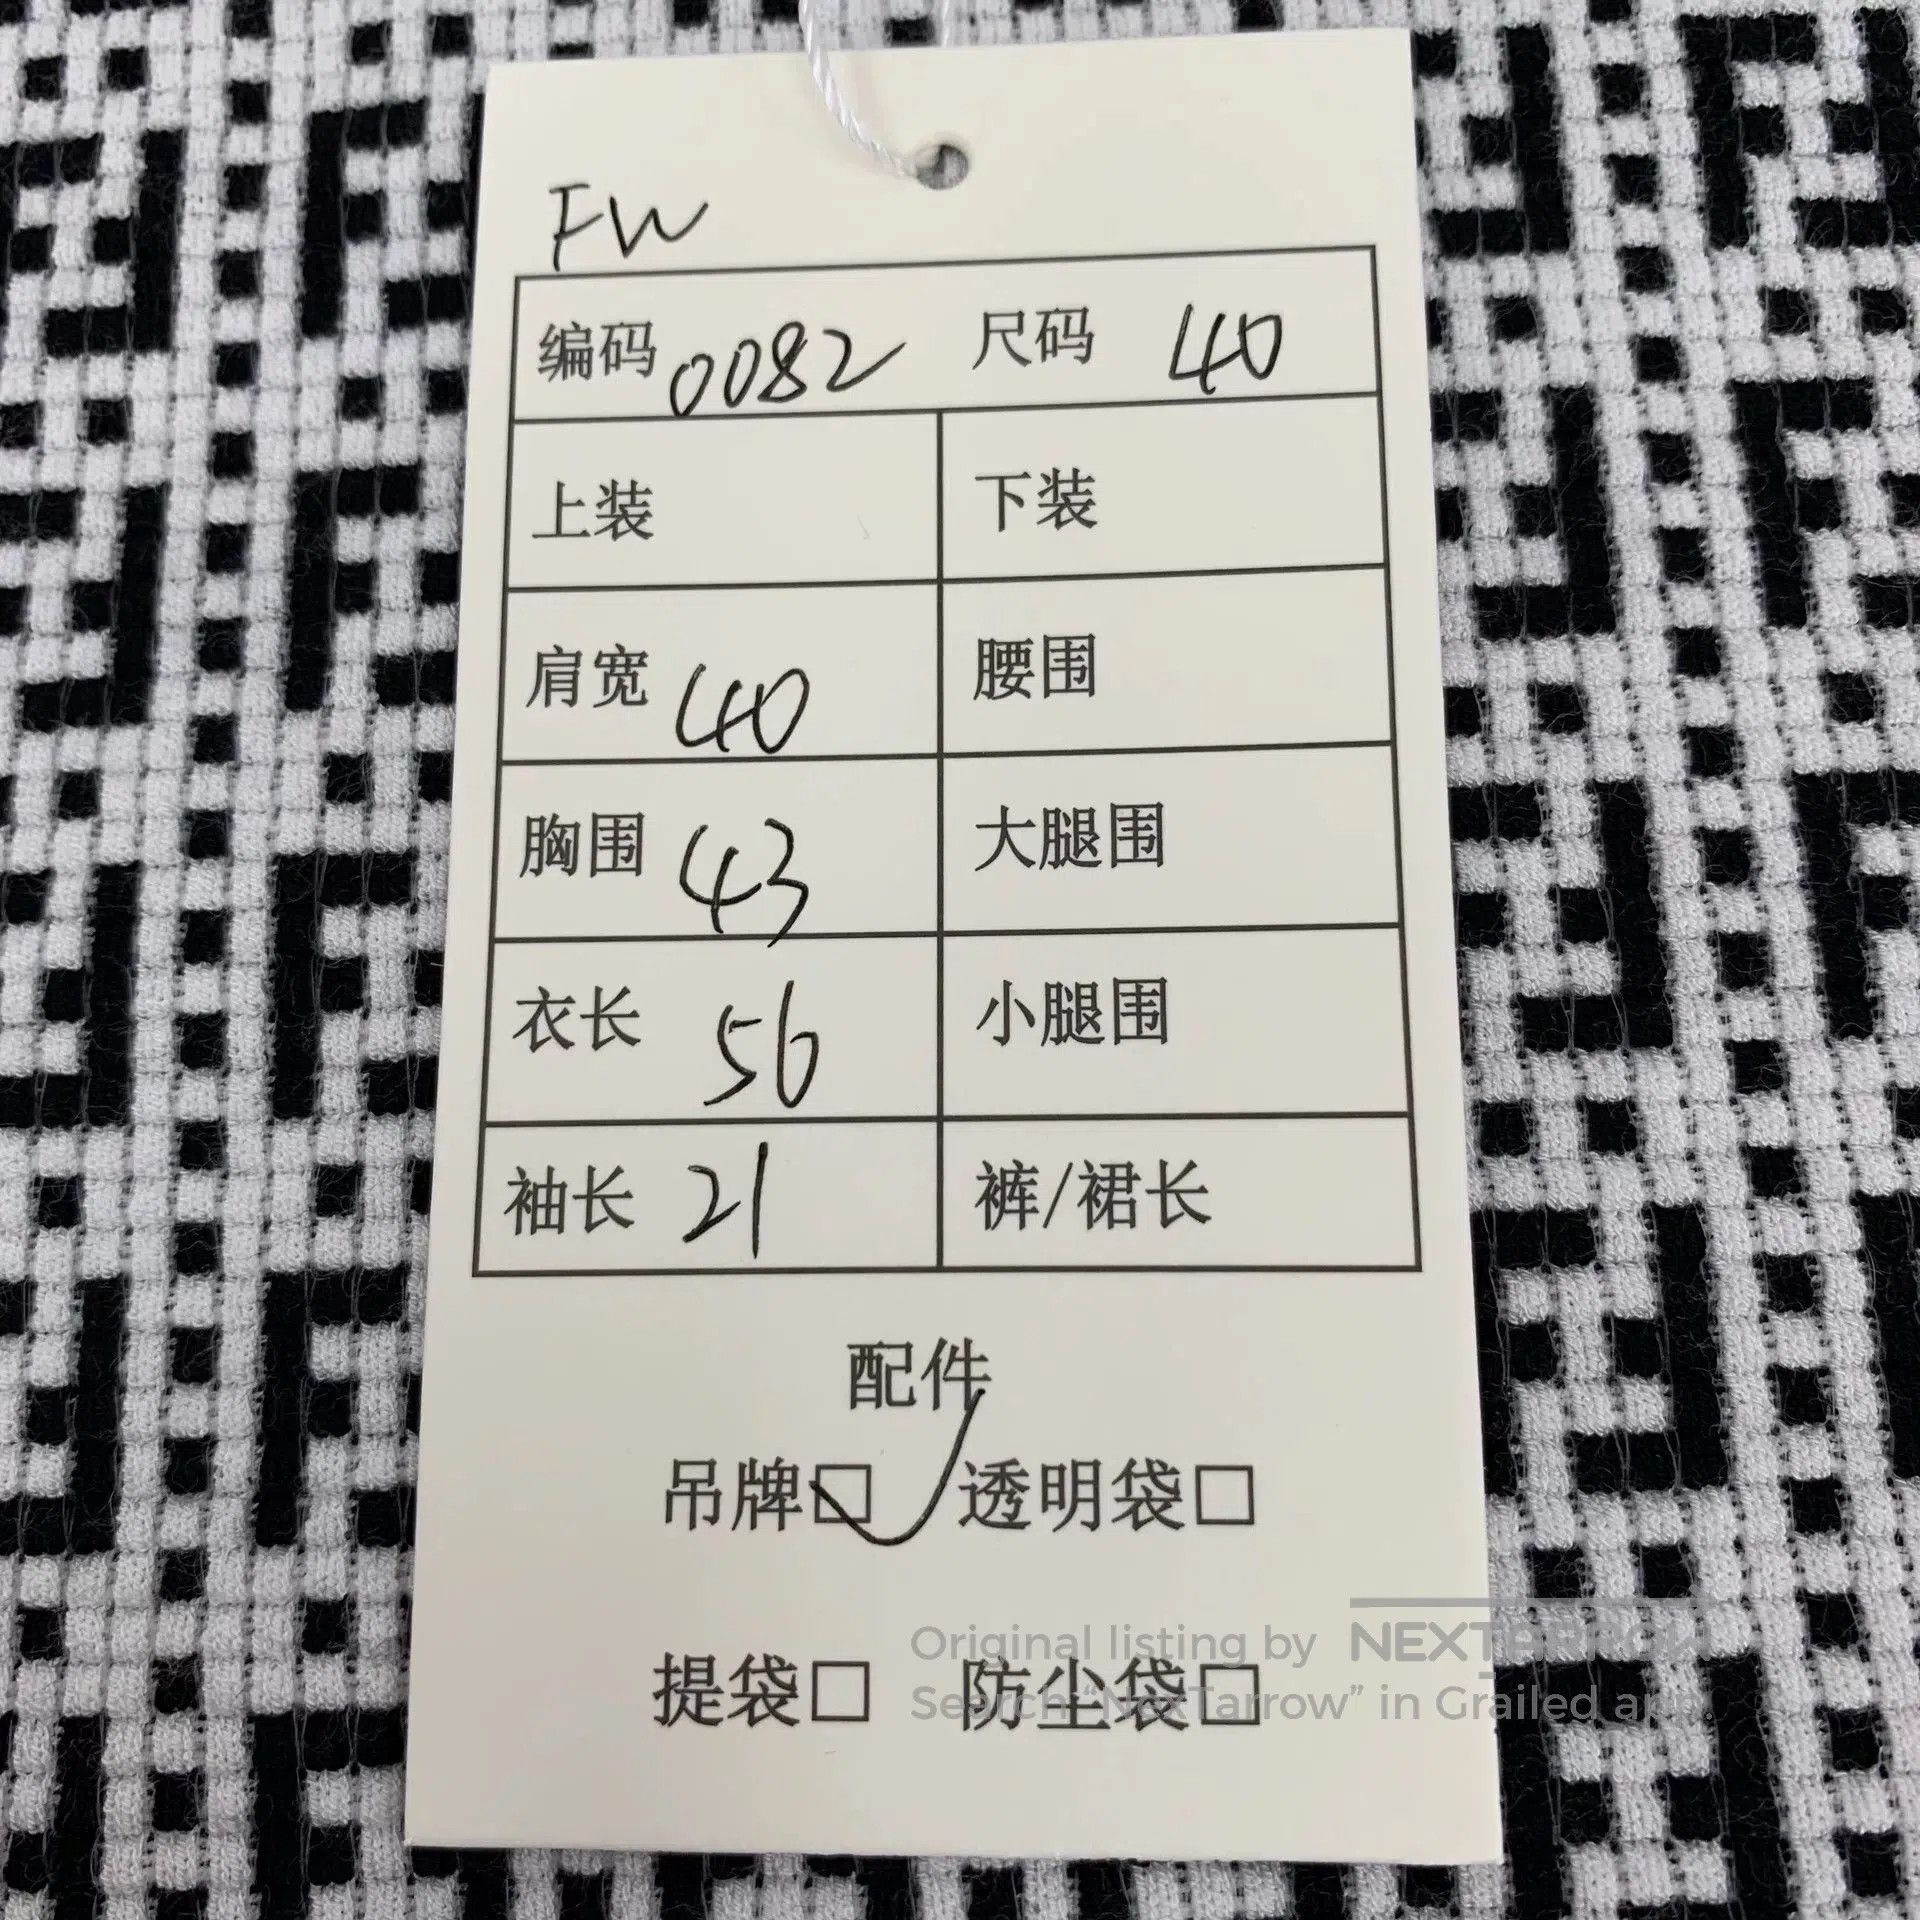 FW
编码 0082 尺码 40
上装 下装
肩宽 40 腰围
胸围 43 大腿围
衣长 56 小腿围
袖长 21 裤/裙长
配件
吊牌 透明袋
提袋 防尘袋
Original listing by NEXTARROW
Search "NexTarrow" in Grailed app.